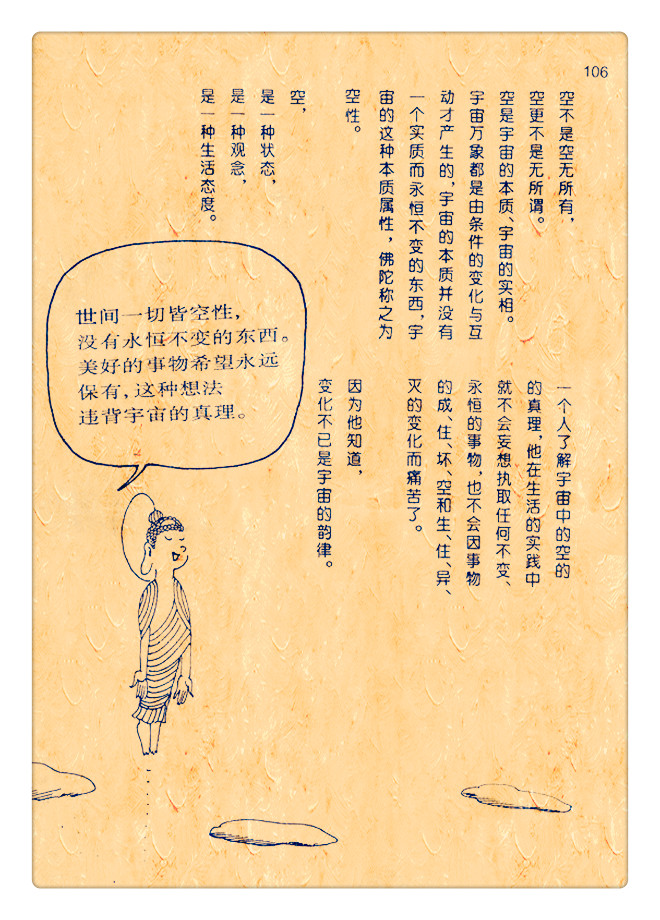 106
空不是空无所有，
空更不是无所谓。
空是宇宙的本质、宇宙的实相。
宇宙万象都是由条件的变化与互
动才产生的，宇宙的本质并没有
一个实质而永恒不变的东西，宇
宙的这种本质属性，佛陀称之为
空性。
空，
是一种状态，
是一种观念，
是一种生活态度。
一个人了解宇宙中的空的
的真理，他在生活的实践中
就不会妄想执取任何不变、
永恒的事物，也不会因事物
的成、住、坏、空和生、住、异、
灭的变化而痛苦了。
因为他知道，
变化不已是宇宙的韵律。
世间一切皆空性，
没有永恒不变的东西。
美好的事物希望永远
保有，这种想法
违背宇宙的真理。